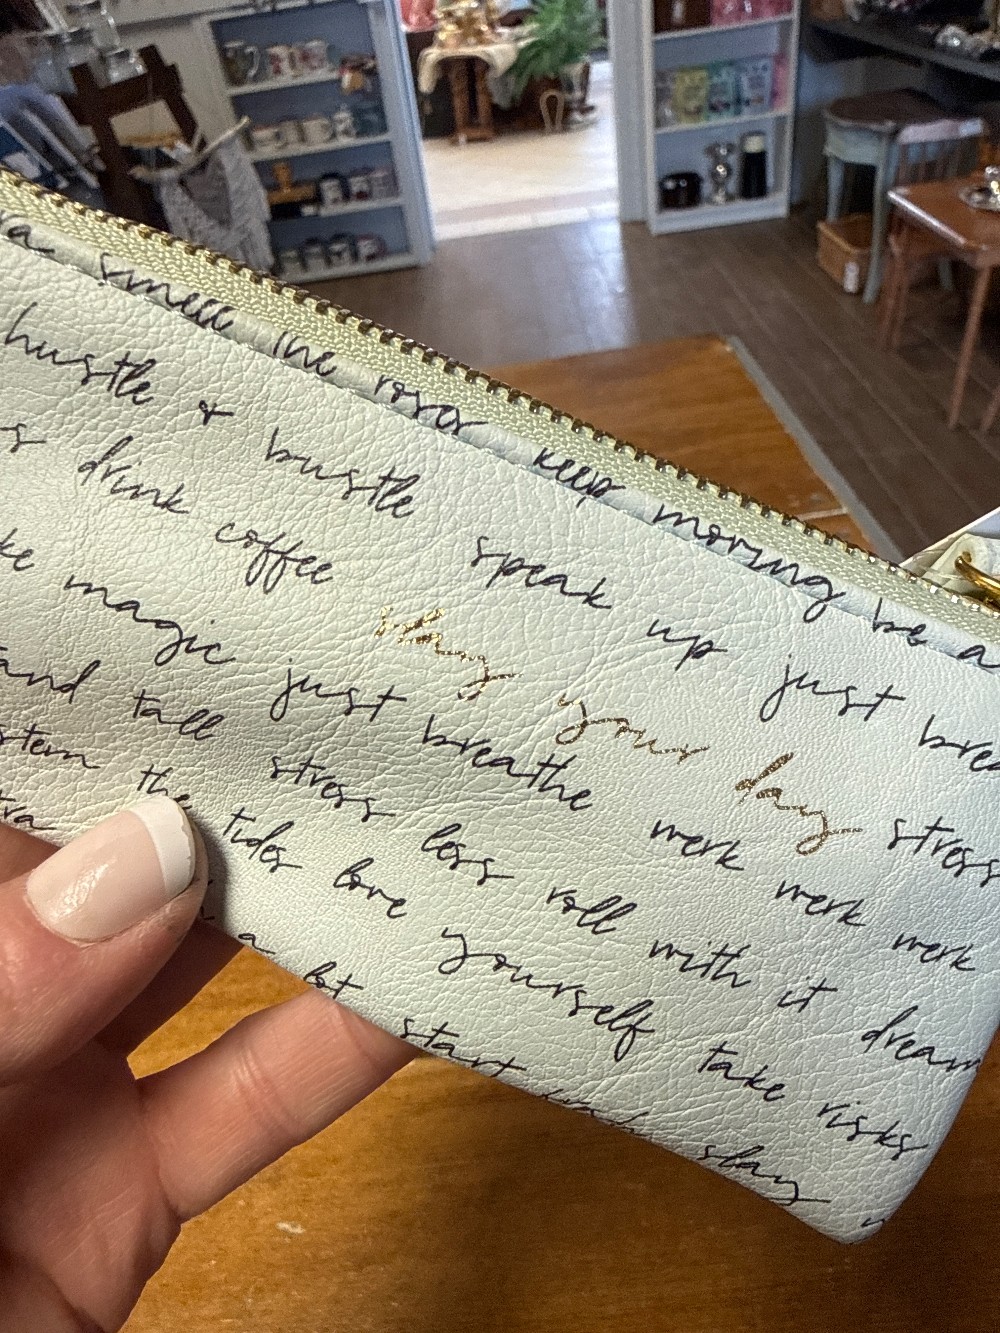 smell the roses keep moving be a
hustle & bustle speak up just brea
s drink coffee slay your day stress
ke magic just breathe werk werk werk
and tall stress less roll with it dream
stem the tides love yourself take risks
tra a lot start today slay